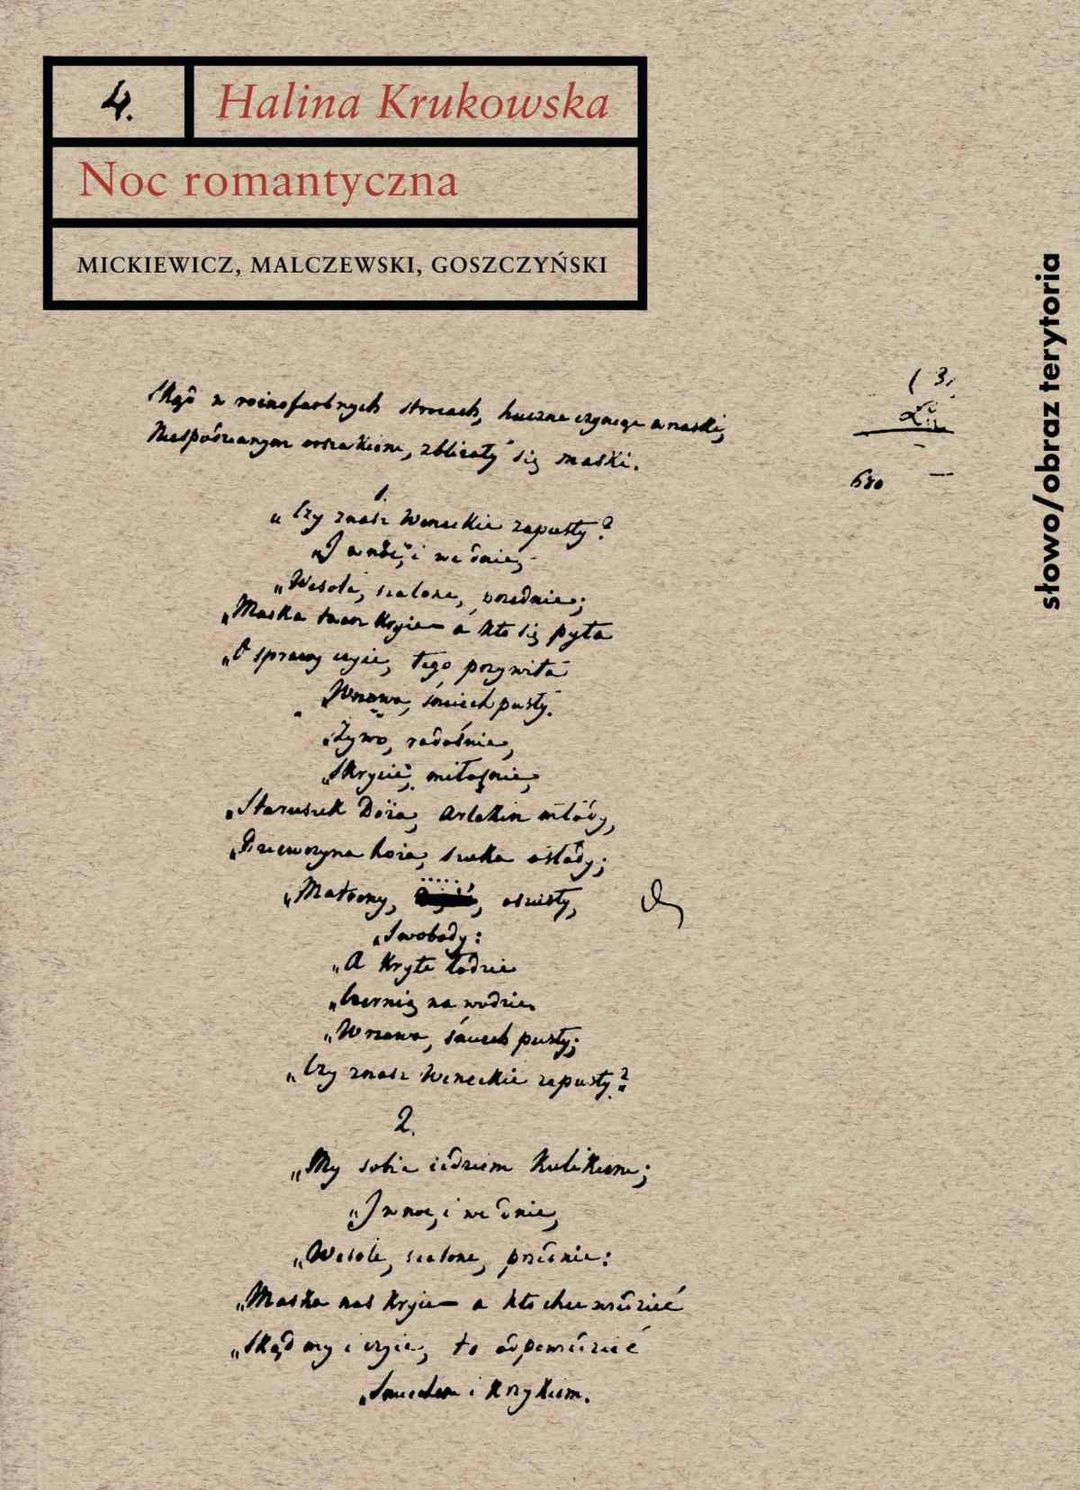 4.
Halina Krukowska
Noc romantyczna
MICKIEWICZ, MALCZEWSKI, GOSZCZYŃSKI
słowo/obraz terytoria
(3.
680
w stroiach, huczne czyniąc wrzaski,
zbliżały się maski.
1.
„Czy znasz Weneckie zapusty?
„I w nocy i we dnie,
„Wesołe, szalone, przednie;
„Maska twarz kryie — a kto się pyta
„O sprawy czyie, tego przywita
„Wrzawa, śmiech pusty.
„Żywo, radośnie,
„Skrycie, miłośnie,
„Staruszek Doża, Arlekin młody,
„Dziewczyna hoża, szuka osłody;
„Matrony, oszusty,
„Swobody:
„A kryte łodzie
„Czernią na wodzie,
„Wrzawa, śmiech pusty;
„Czy znasz Weneckie zapusty?
2.
„My sobie iedziem Kulikiem;
„I w noc, i we dnie,
„Wesołe, szalone, przednie:
„Maska nas kryie — a kto chce wiedzieć
„Skąd my i czyie, to odpowiedzieć
„Śmiechem i krzykiem.